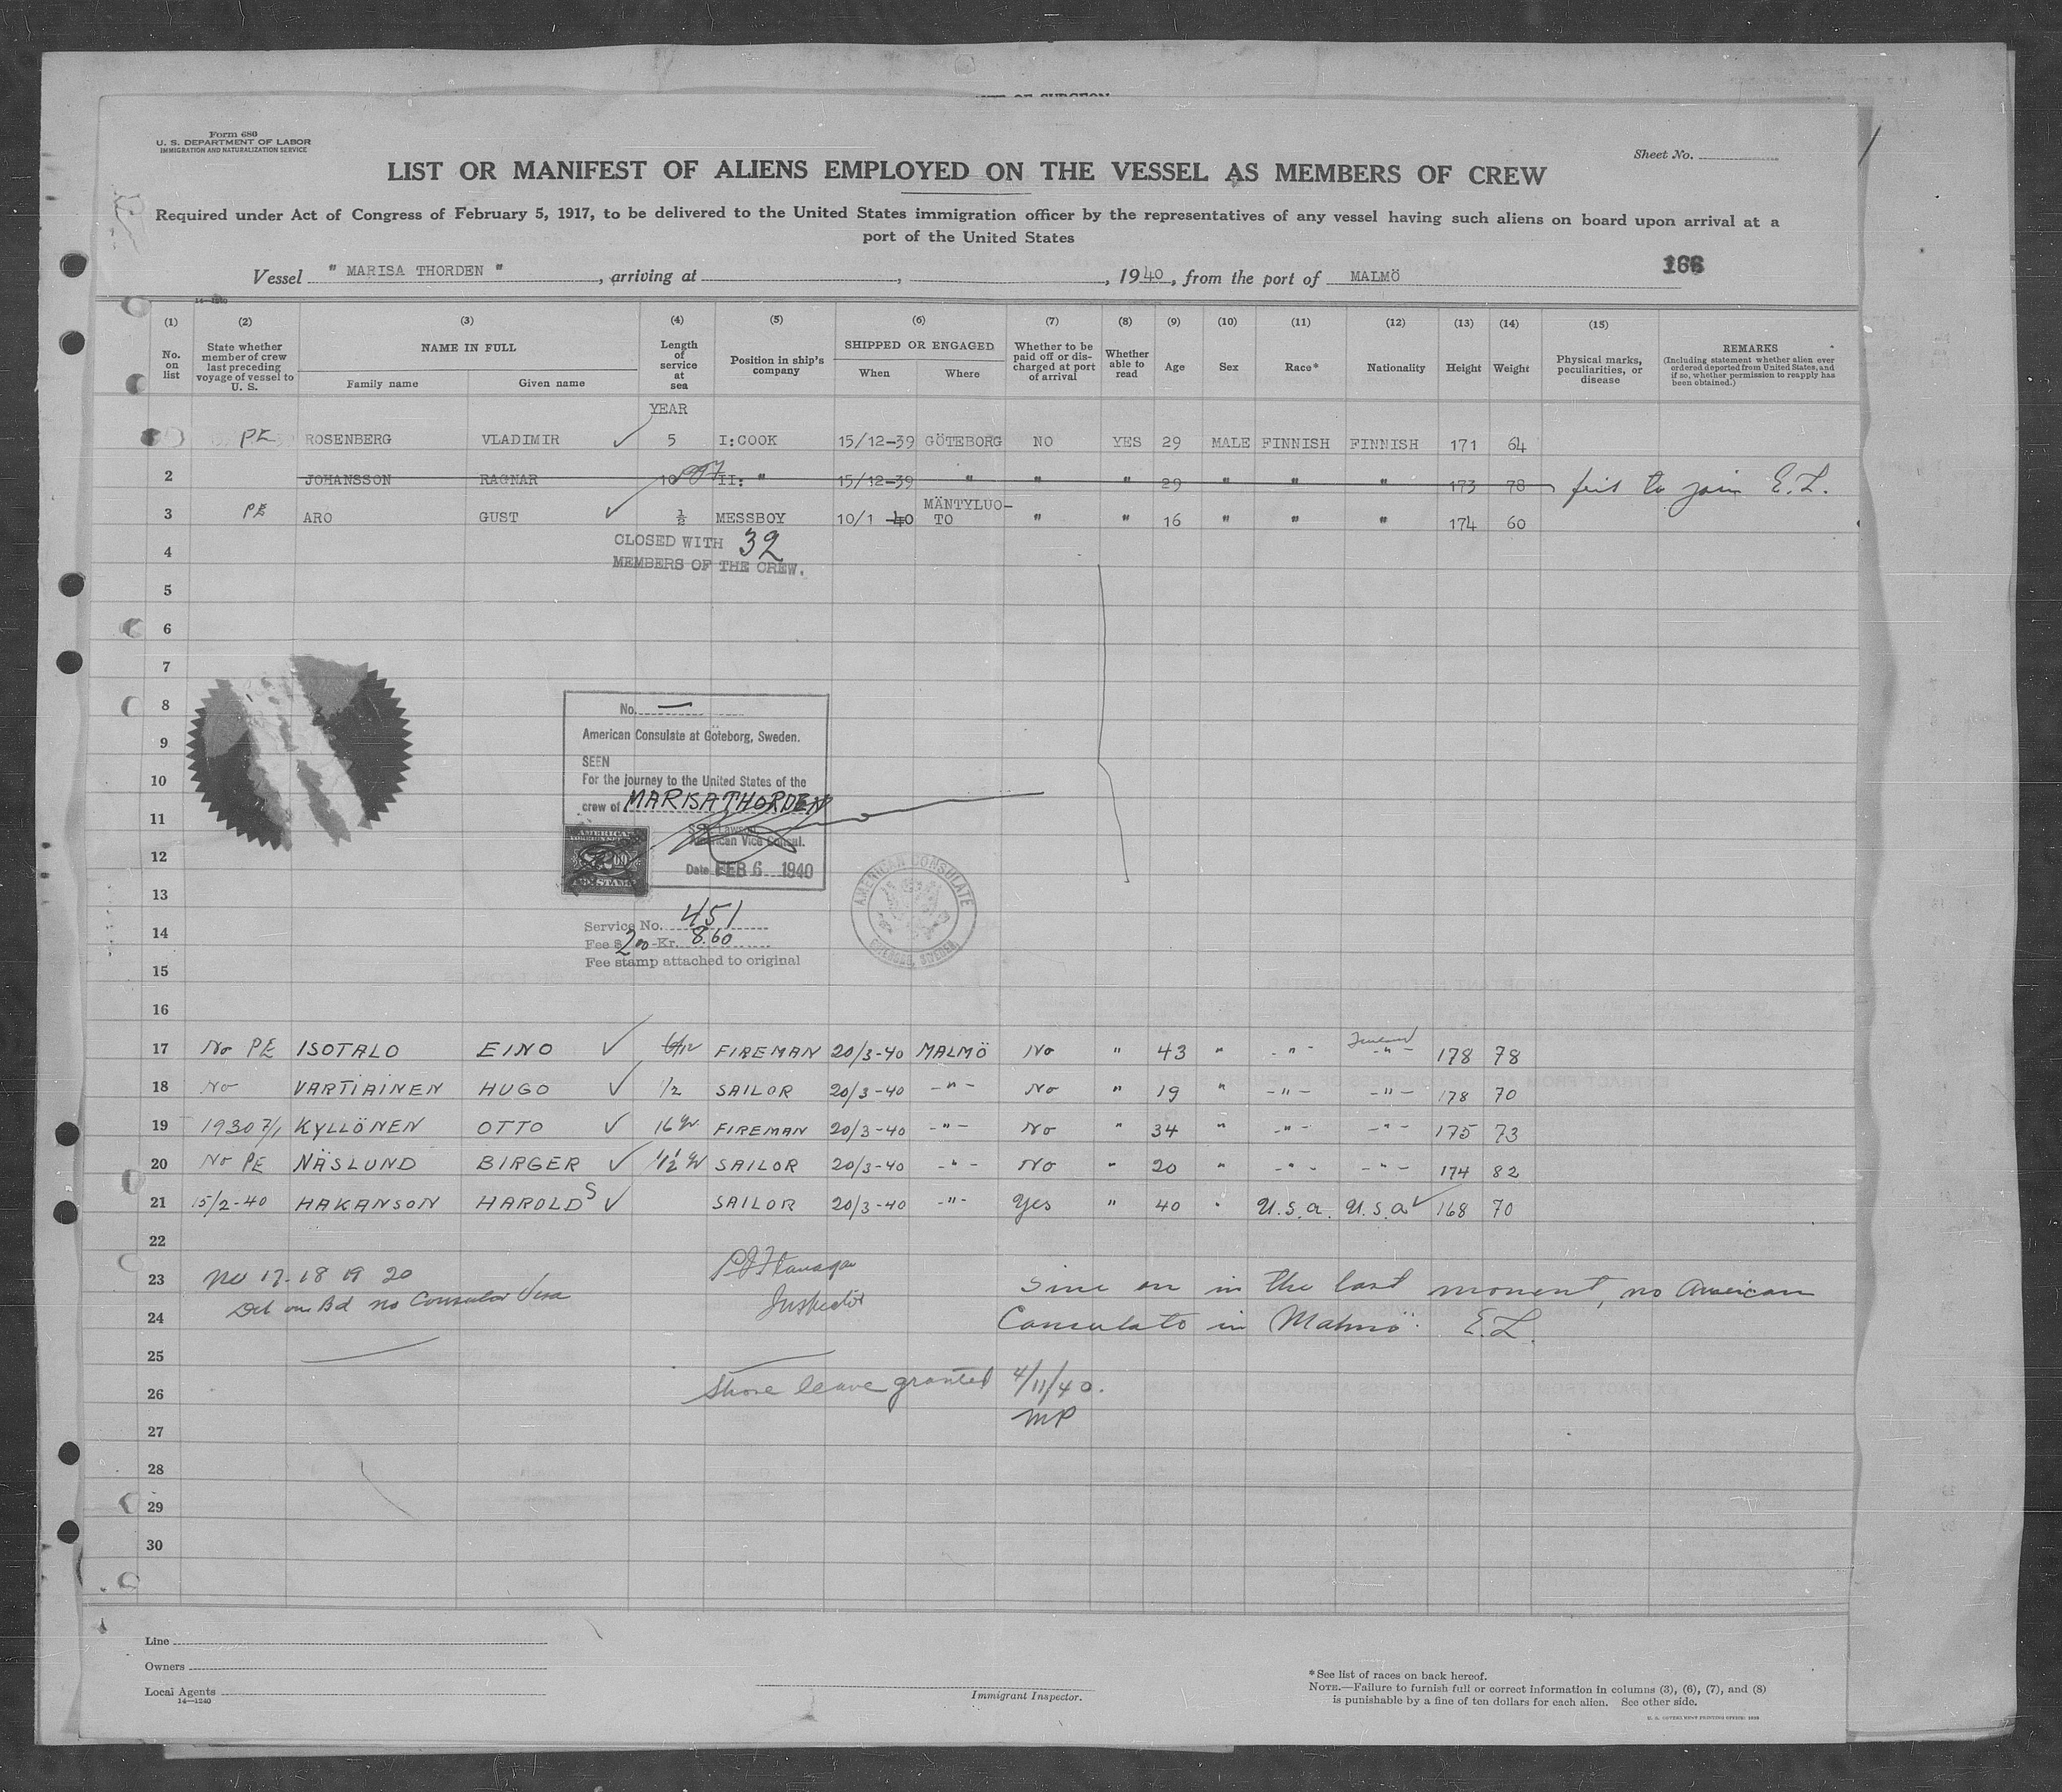 Form 680
U. S. DEPARTMENT OF LABOR
IMMIGRATION AND NATURALIZATION SERVICE
Sheet No.
LIST OR MANIFEST OF ALIENS EMPLOYED ON THE VESSEL AS MEMBERS OF CREW
Required under Act of Congress of February 5, 1917, to be delivered to the United States immigration officer by the representatives of any vessel having such aliens on board upon arrival at a
port of the United States
Vessel " MARISA THORDEN " , arriving at , , 1940, from the port of MALMÖ
14—1240
(1) (2) (3) (4) (5) (6) (7) (8) (9) (10) (11) (12) (13) (14) (15)
No. on list
State whether member of crew last preceding voyage of vessel to U. S.
NAME IN FULL
Family name Given name
Length of service at sea
Position in ship's company
SHIPPED OR ENGAGED
When Where
Whether to be paid off or discharged at port of arrival
Whether able to read
Age
Sex
Race*
Nationality
Height
Weight
Physical marks, peculiarities, or disease
REMARKS
(Including statement whether alien ever ordered deported from United States, and if so, whether permission to reapply has been obtained.)
YEAR
PE ROSENBERG VLADIMIR ✓ 5 I:COOK 15/12-39 GÖTEBORG NO YES 29 MALE FINNISH FINNISH 171 64
2 JOHANSSON RAGNAR 10 II: " 15/12-39 " " " 29 " " " 173 78 to join E.L.
3 PE ARO GUST ✓ ½ MESSBOY 10/1 40 MÄNTYLUOTO " " 16 " " " 174 60
4 CLOSED WITH 32
MEMBERS OF THE CREW.
5
6
7
8
No. —
American Consulate at Göteborg, Sweden.
9
SEEN
10
For the journey to the United States of the
crew of MARISA THORDEN
11
American Vice Consul.
12
Date FEB 6 1940
AMERICAN CONSULATE
GÖTEBORG, SWEDEN
13
14
Service No. 451
Fee $ 2.00 -Kr. 8.60
Fee stamp attached to original
15
16
17 No PE ISOTALO EINO ✓ FIREMAN 20/3-40 MALMÖ No " 43 " -"- -"- 178 78
18 No VARTIAINEN HUGO ✓ 1/2 SAILOR 20/3-40 -"- No " 19 " -"- -"- 178 70
19 1930 7/1 KYLLÖNEN OTTO ✓ 16 FIREMAN 20/3-40 -"- No " 34 " -"- -"- 175 73
20 No PE NÄSLUND BIRGER ✓ 1½ SAILOR 20/3-40 -"- No " 20 " -"- -"- 174 82
21 15/2-40 HAKANSON HAROLD S ✓ SAILOR 20/3-40 -"- Yes " 40 " U.S.A. U.S.A ✓ 168 70
22
23 No 17-18 19 20 Flanagan
Det on Bd no Consular Visa Inspector
Sine on in the last moment, no American
24 Consulate in Malmö. E.L.
25
26 Shore leave granted 4/11/40.
MP
27
28
29
30
Line
Owners
Local Agents
14—1240
Immigrant Inspector.
*See list of races on back hereof.
NOTE.—Failure to furnish full or correct information in columns (3), (6), (7), and (8)
is punishable by a fine of ten dollars for each alien. See other side.